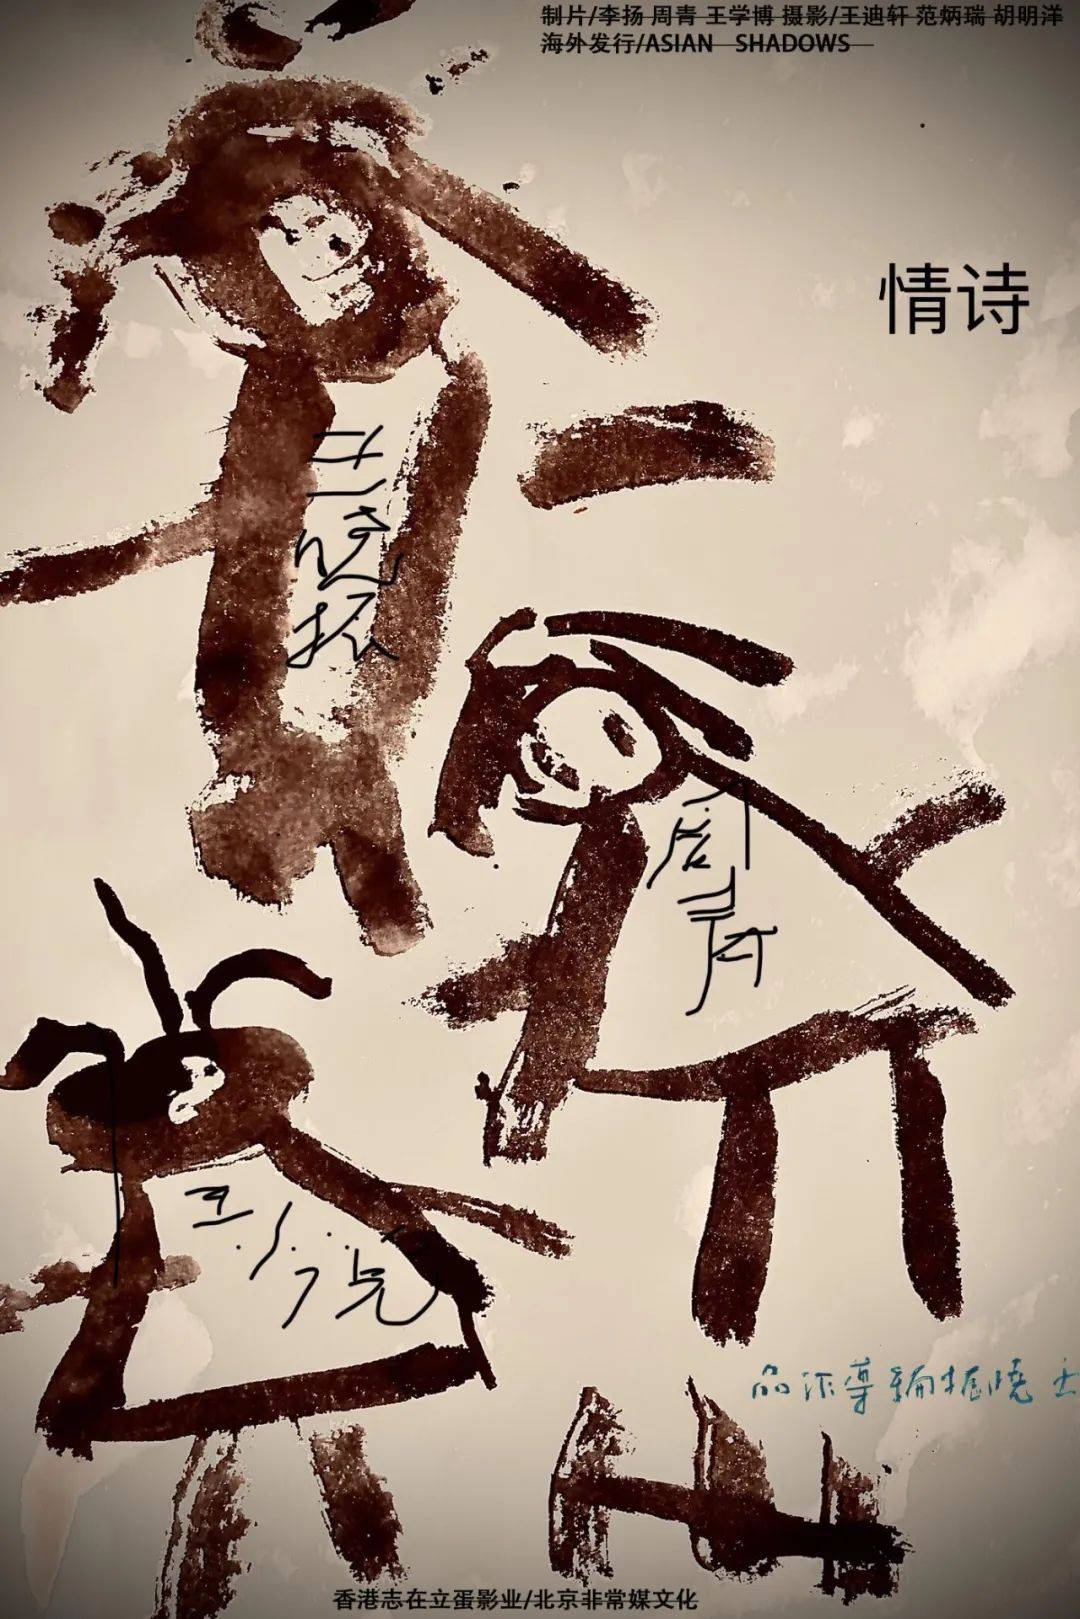 制片/李扬 周青 王学博 摄影/王迪轩 范炳瑞 胡明洋
海外发行/ASIAN SHADOWS
情诗
王晓振
周青
王小兑
品作导编振曉王
香港志在立蛋影业/北京非常媒文化